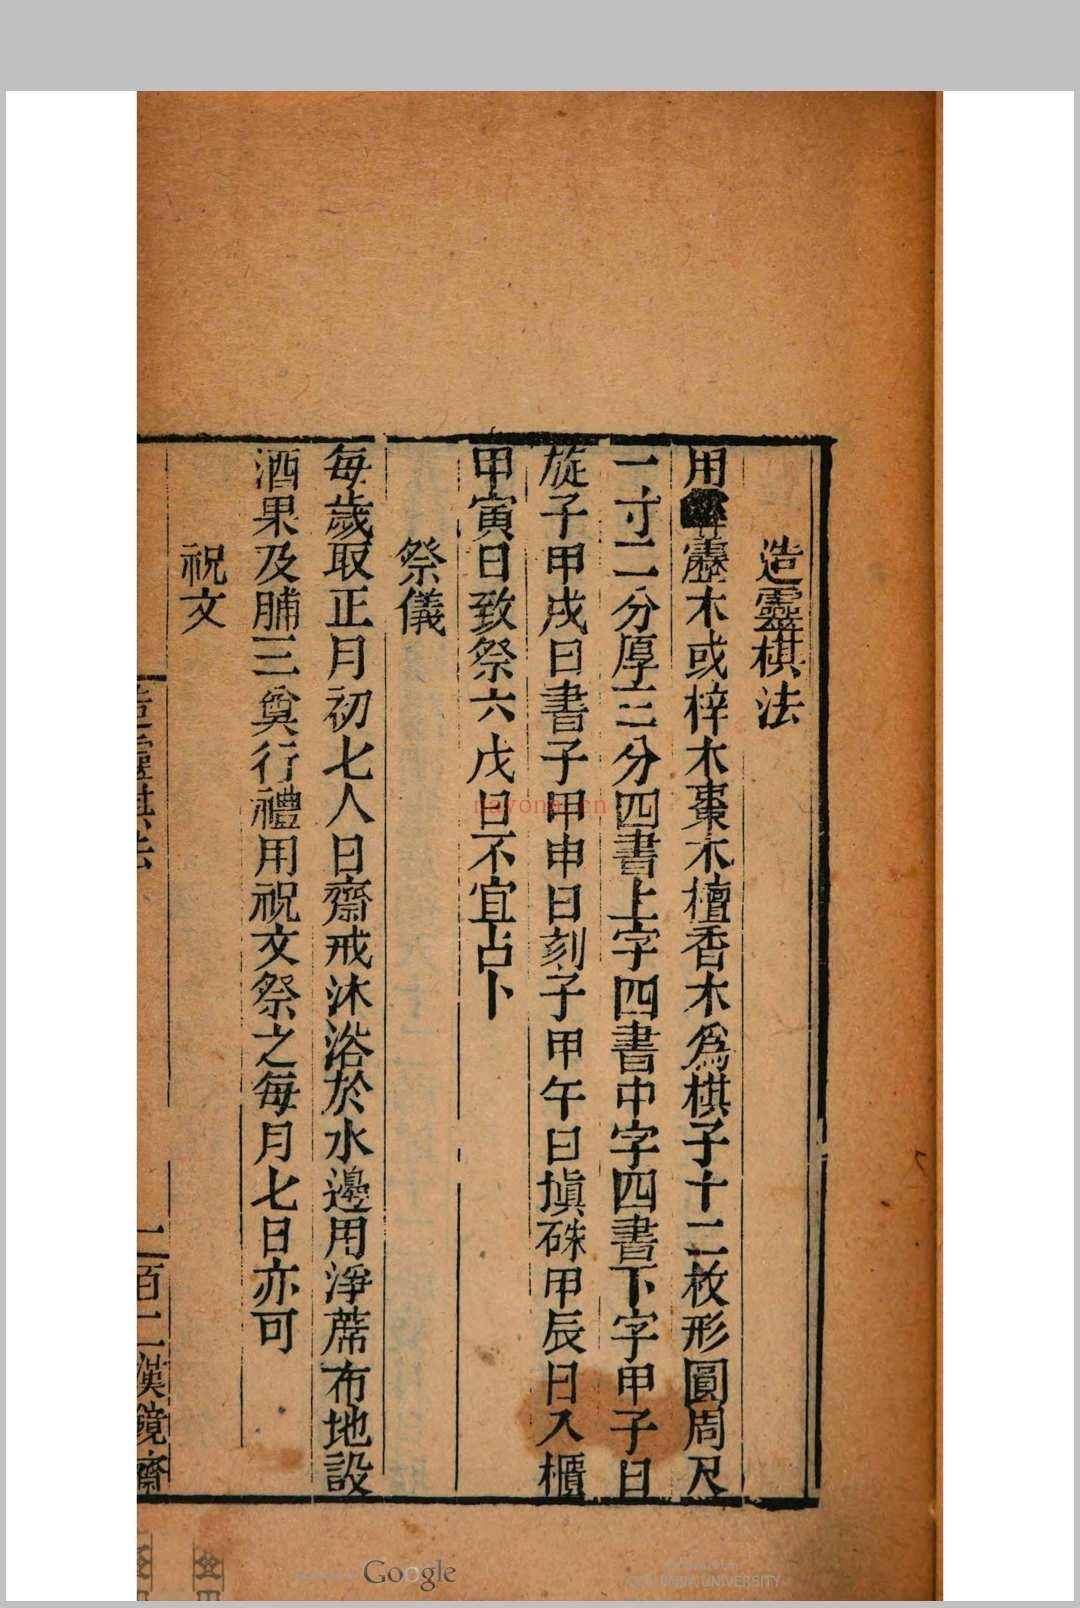 造靈棋法
用靂木或梓木棗木檀香木爲棋子十二枚形圓周尺
一寸二分厚三分四書上字四書中字四書下字甲子日
旋子甲戌日書子甲申日刻子甲午日塡硃甲辰日入櫃
甲寅日致祭六戊日不宜占卜
祭儀
每歲取正月初七人日齋戒沐浴於水邊用淨蓆布地設
酒果及脯三奠行禮用祝文祭之每月七日亦可
祝文
造靈棋法
二百二 漢鏡齋
nayona.cn
Google
COLUMBIA UNIVERSITY